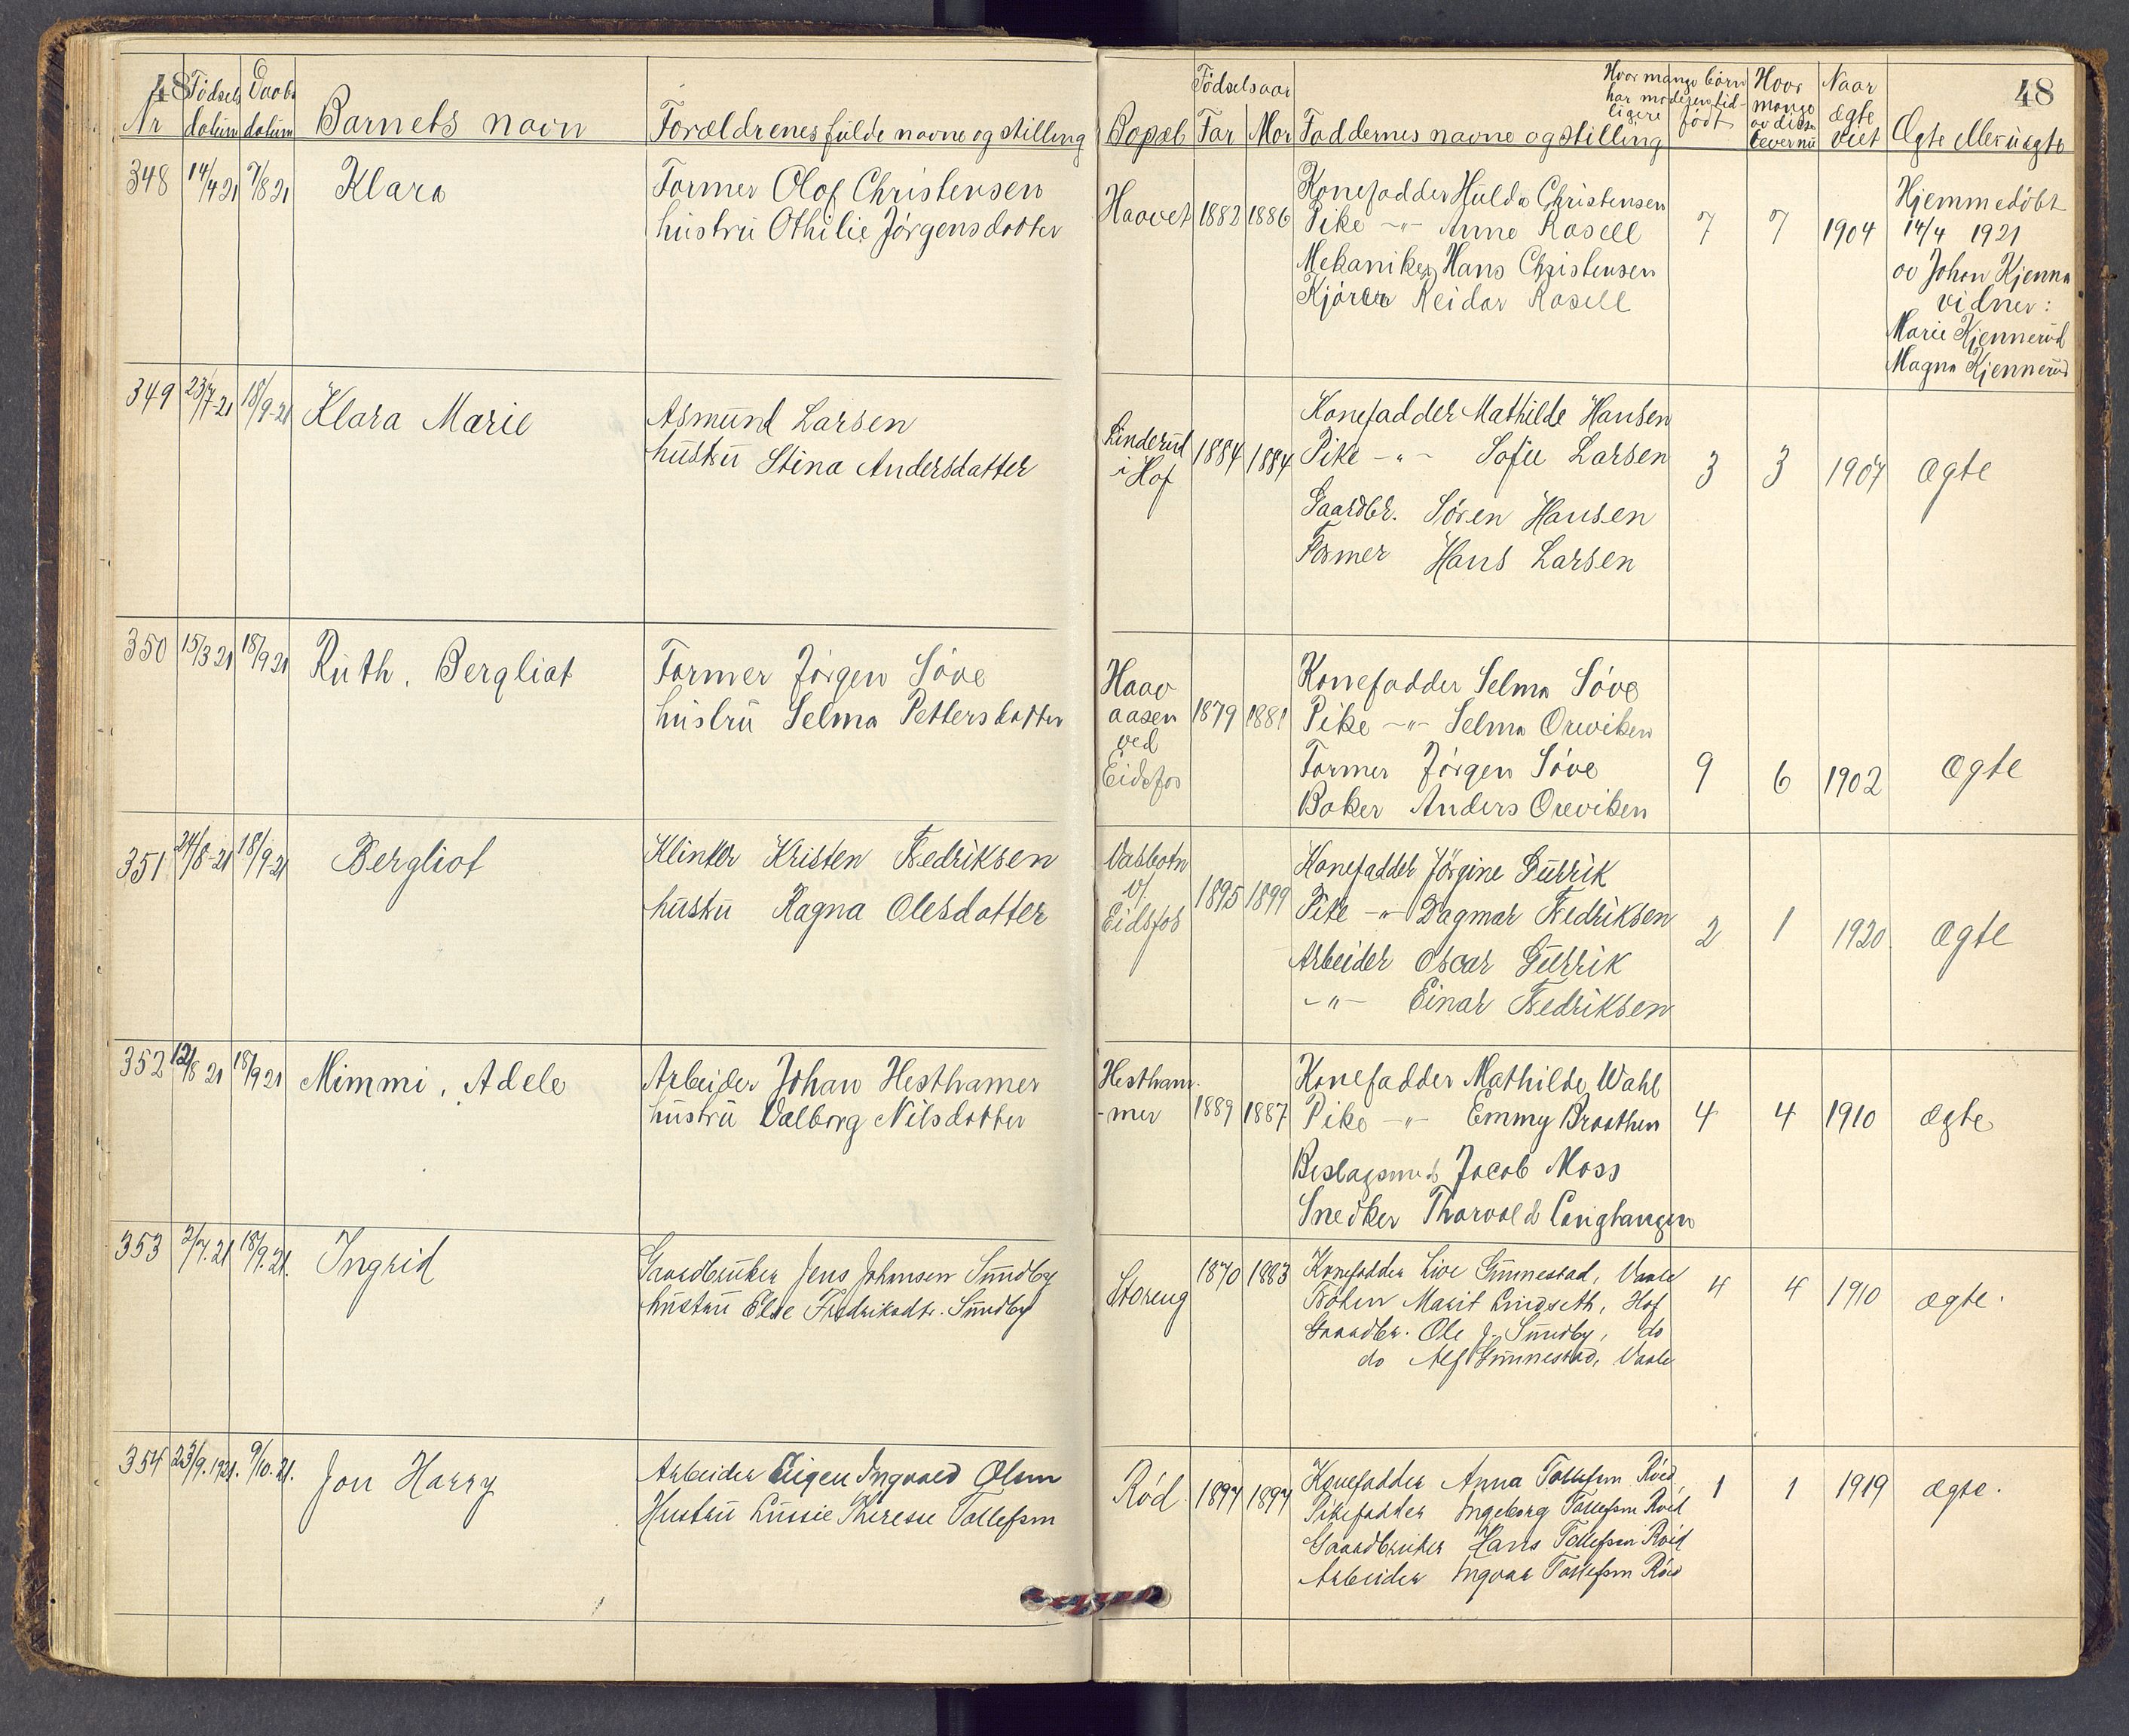 48
Nr
Födsels datum
Daabs datum
Barnets navn
Forældrenes fulde navne og stilling
Bopæl
Födselsaar
Far
Mor
Faddernes navne og stilling
Hvor mange börn har moderen tidligere födt
Hvor mange av disse lever nu
Naar egte viet
Ægte eller uægte
48
348 14/4 21 7/8 21 Klara
Former Olof Christensen
hustru Othilie Jörgensdatter
Haavet 1882 1886
Konefadder Hulda Christensen
Pike -"- Anna Rosell
Mekaniker Hans Christensen
Kjörer Reidar Rosell
7 7 1904
Hjemmedöbt
14/4 1921
av Johan Kjenne
vidner:
Marie Kjennerud
Magna Kjennerud
349 23/7-21 18/9-21 Klara Marie
Asmund Larsen
hustru Stina Andersdatter
Linderud
i Hof
1884 1884
Konefadder Mathilde Hansen
Pike -"- Sofie Larsen
Gaardbr. Sören Hansen
Former Hans Larsen
3 3 1907 Ægte
350 15/3 21 18/9 21 Ruth, Bergliot
Former Jörgen Söve
hustru Selma Pettersdatter
Haav
aasen
ved
Eidsfos
1879 1881
Konefadder Selma Söve
Pike -"- Selma Oreviken
Former Jörgen Söve
Baker Anders Oreviken
9 6 1902 Ægte
351 24/8-21 18/9-21 Bergliot
Klinker Kristen Fredriksen
hustru Ragna Olesdatter
Vasbotn
v/.
Eidsfos
1895 1899
Konefadder Jörgine Gurrik
Pike -"- Dagmar Fredriksen
Arbeider Oscar Gurrik
-"- Einar Fredriksen
2 1 1920. Ægte
352 12/8 21 18/9 21 Mimmi, Adele
Arbeider Johan Hesthamer
hustru Valborg Nilsdatter
Hestham-
-mer
1889 1887
Konefadder Mathilde Wahl
Pike -"- Emmy Braathen
Beslagsmed Jacob Moss
Snedker Thorvald Langhangen
4 4 1910 Ægte
353 2/7.21 18/9.21. Ingrid
Gaardbruker Jens Johansen Sundby
hustru Else Fredriksdtr. Sundby
Storeng 1870 1883
Konefadder Live Gunnestad, Vaale
Fröken Marit Lindseth, Hof
Gaardbr. Ole J. Sundby, do
do Alf Gunnestad, Vaale
4 4 1910 Ægte.
354 23/9.1921. 9/10.21. Jon Harry
Arbeider Eigen Ingvald Olsen
Hustru Lussie Therese Tollefsen
Röd 1897 1897
Konefadder Anna Tollefsen Röd
Pikefadder Ingeborg Tollefsen Röd
Gaardbruker Hans Tollefsen Röd
Arbeider Ingvar Tollefsen Röd
1 1 1919 Ægte.